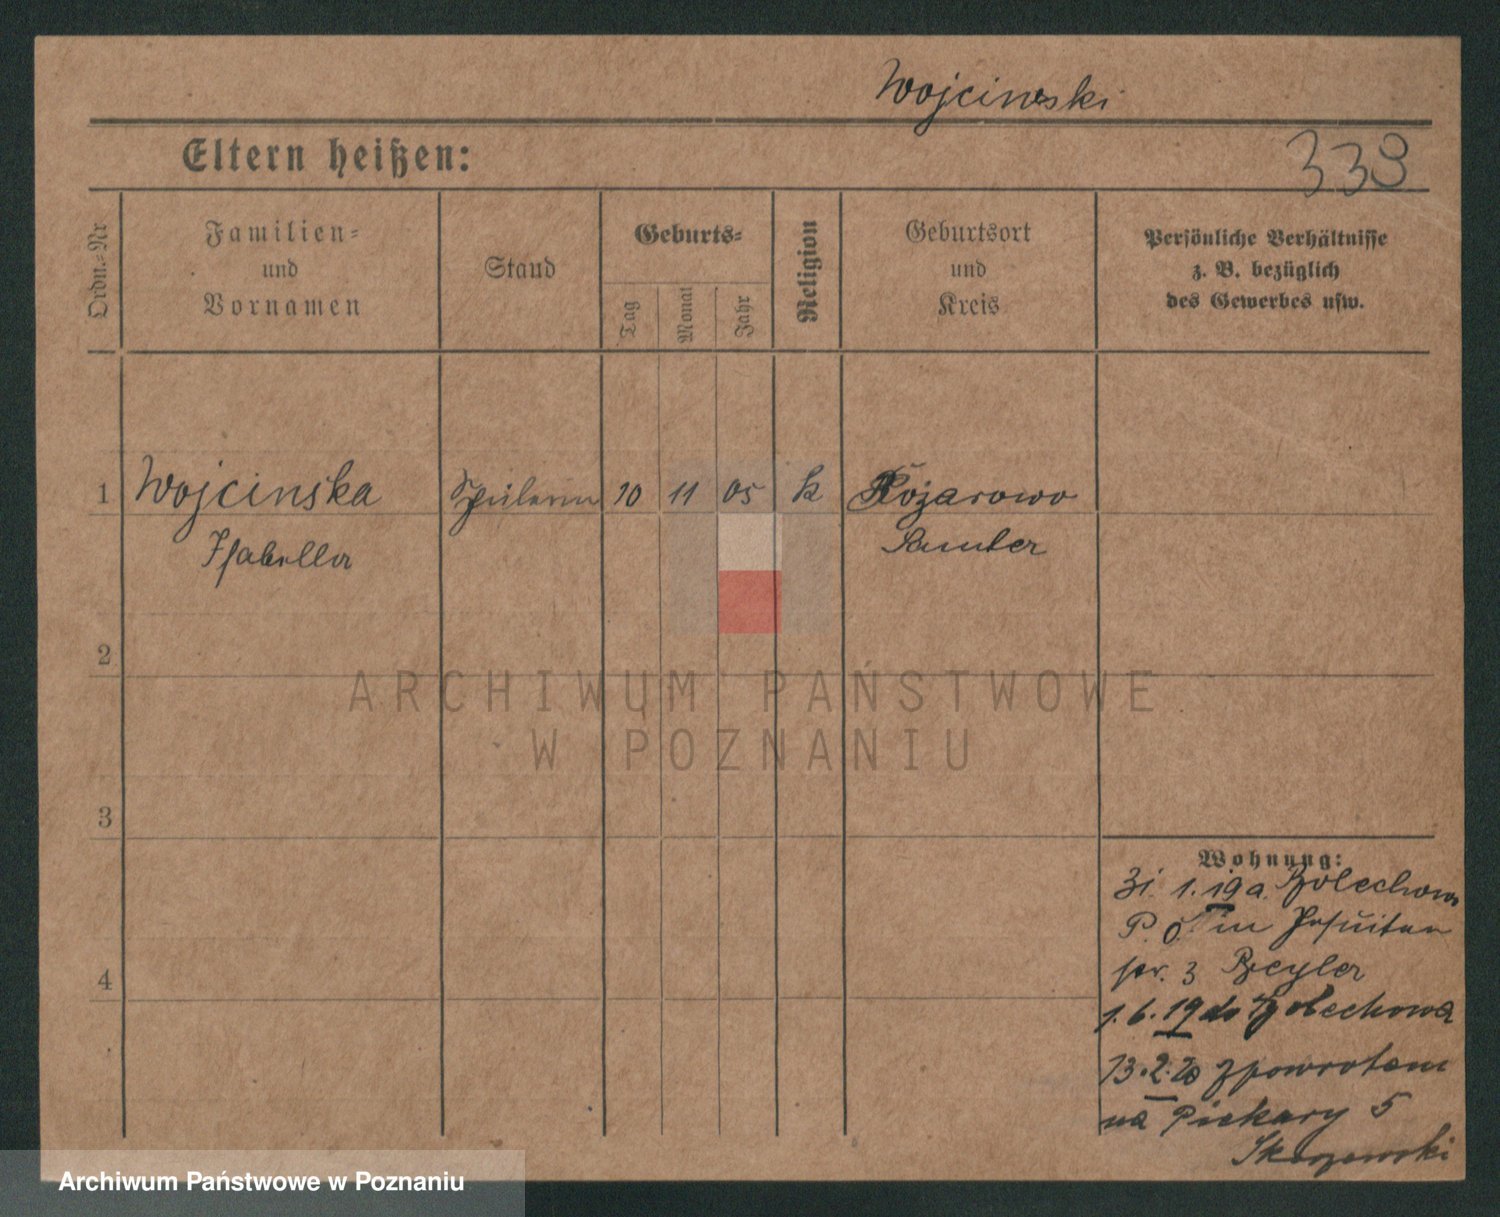 Wojcinski
Eltern heißen:
338
Ordn.-Nr
Familien-
und
Vornamen
Stand
Geburts-
Tag
Monat
Jahr
Religion
Geburtsort
und
Kreis
Persönliche Verhältnisse
z. B. bezüglich
des Gewerbes usw.
1 Wojcinska 10 11 05 k Różarowo
Isabella Samter
2
3
4
Wohnung:
1. 19 a. Bolechowo
P. O. in Jesuiten
3 Beyler
1. 6. 19 do Bolechowa
13. 2. 20 z powrotem
na Piekary 5
ARCHIWUM PAŃSTWOWE
W POZNANIU
Archiwum Państwowe w Poznaniu